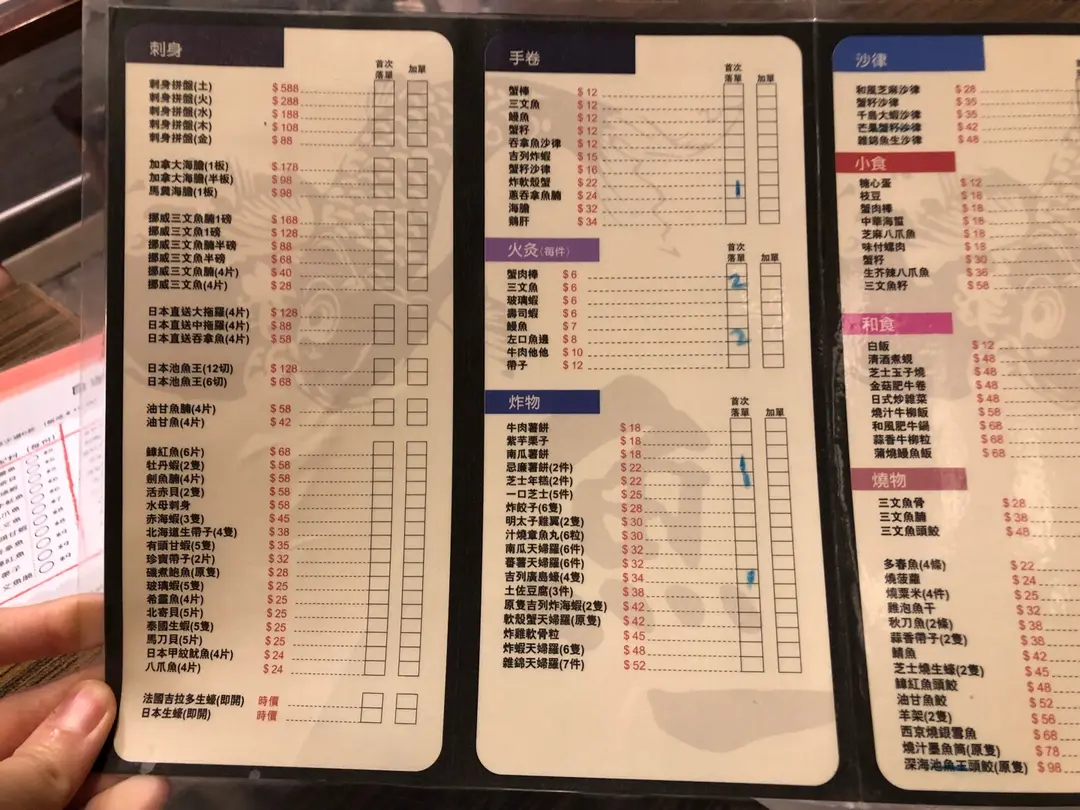 刺身
首次
落單
加單
刺身拼盤(土) $588
刺身拼盤(火) $288
刺身拼盤(水) $188
刺身拼盤(木) $108
刺身拼盤(金) $88
加拿大海膽(1板) $178
加拿大海膽(半板) $98
馬糞海膽(1板) $98
挪威三文魚腩1磅 $168
挪威三文魚1磅 $128
挪威三文魚腩半磅 $88
挪威三文魚半磅 $68
挪威三文魚腩(4片) $40
挪威三文魚(4片) $28
日本直送大拖羅(4片) $128
日本直送中拖羅(4片) $88
日本直送吞拿魚(4片) $58
日本池魚王(12切) $128
日本池魚王(6切) $68
油甘魚腩(4片) $58
油甘魚(4片) $42
鱆紅魚(6片) $68
牡丹蝦(2隻) $58
劍魚腩(4片) $58
活赤貝(2隻) $58
水母刺身 $58
赤海蝦(3隻) $45
北海道生帶子(4隻) $38
有頭甘蝦(5隻) $35
珍寶帶子(2片) $32
磯煮鮑魚(原隻) $28
玻璃蝦(5隻) $25
希靈魚(4片) $25
北寄貝(5片) $25
泰國生蝦(5隻) $25
馬刀貝(5片) $25
日本甲紋魷魚(4片) $24
八爪魚(4片) $24
法國吉拉多生蠔(即開) 時價
日本生蠔(即開) 時價
手卷
首次
落單
加單
蟹棒 $12
三文魚 $12
鰻魚 $12
蟹籽 $12
吞拿魚沙律 $12
吉列炸蝦 $15
蟹籽沙律 $16
炸軟殼蟹 $22
蔥吞拿魚腩 $24 1
海膽 $32
鵝肝 $34
火灸(每件)
首次
落單
加單
蟹肉棒 $6
三文魚 $6 2
玻璃蝦 $6
壽司蝦 $6
鰻魚 $7
左口魚邊 $8 2
牛肉他他 $10
帶子 $12
炸物
首次
落單
加單
牛肉薯餅 $18
紫芋栗子 $18
南瓜薯餅 $18
忌廉薯餅(2件) $22
芝士年糕(2件) $22 1
一口芝士(5件) $25
炸餃子(6隻) $28
明太子雞翼(2隻) $30
汁燒章魚丸(6粒) $30
南瓜天婦羅(6件) $32
蕃薯天婦羅(6件) $32
吉列廣島蠔(4隻) $34 1
土佐豆腐(3件) $38
原隻吉列炸海蝦(2隻) $42
軟殼蟹天婦羅(原隻) $42
炸雞軟骨粒 $45
炸蝦天婦羅(6隻) $48
雜錦天婦羅(7件) $52
沙律
和風芝麻沙律 $28
蟹籽沙律 $35
千島大蝦沙律 $35
芒果蟹籽沙律 $42
雜錦魚生沙律 $48
小食
糖心蛋 $12
枝豆 $18
蟹肉棒 $18
中華海蜇 $18
芝麻八爪魚 $18
味付螺肉 $18
蟹籽 $30
生芥辣八爪魚 $36
三文魚籽 $58
和食
白飯 $12
清酒煮蜆 $48
芝士玉子燒 $48
金菇肥牛卷 $48
日式炒雜菜 $48
燒汁牛柳飯 $58
和風肥牛鍋 $68
蒜香牛柳粒 $68
蒲燒鰻魚飯 $68
燒物
三文魚骨 $28
三文魚腩 $38
三文魚頭鮫 $48
多春魚(4條) $22
燒菠蘿 $24
燒粟米(4件) $25
雞泡魚干 $32
秋刀魚(2條) $38
蒜香帶子(2隻) $38
鯖魚 $42
芝士燒生蠔(2隻) $45
鱆紅魚頭鮫 $48
油甘魚鮫 $52
羊架(2隻) $56
西京燒銀雪魚 $68
燒汁墨魚筒(原隻) $78
深海池魚王頭鮫(原隻) $98